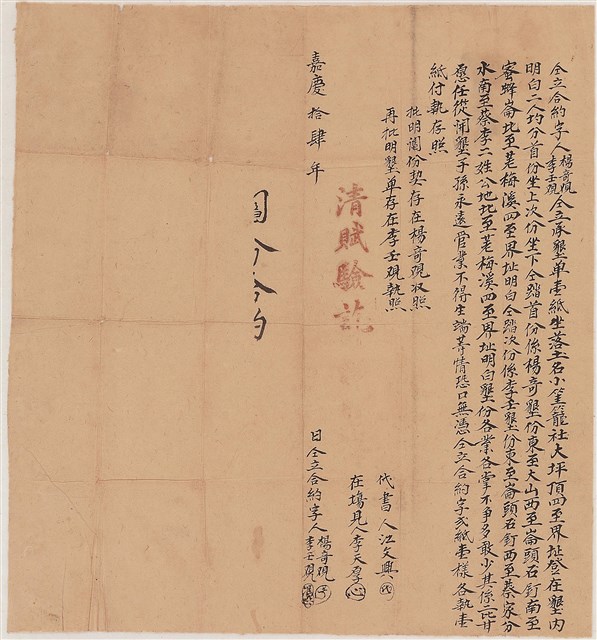 仝立合約字人楊奇覌李壬覌仝立承墾单壹紙坐落土名小筀籠社大坪頂四至界址登在墾內
明白二人均分首份坐上次份坐下仝踏首份係楊奇墾份東至大山西至崙頭石釘南至
蜜蜂崙北至茗梅溪四至界址明白仝踏次份係李壬墾份東至崙頭石釘西至蔡家分
水南至蔡李二姓公地北至茗梅溪四至界址明白墾份各業各掌不争多敢少其係二比甘
愿任從開墾子孫永遠管業不得生端等情恐口無憑仝立合約字弍紙壹樣各執壹
紙付執存照
批明鬮份契存在楊奇覌收照
再批明墾单存在李壬覌執照
代書人江文興
在塲見人李天厚
清賦驗訖
嘉慶拾肆年 日仝立合約字人楊奇覌李壬覌